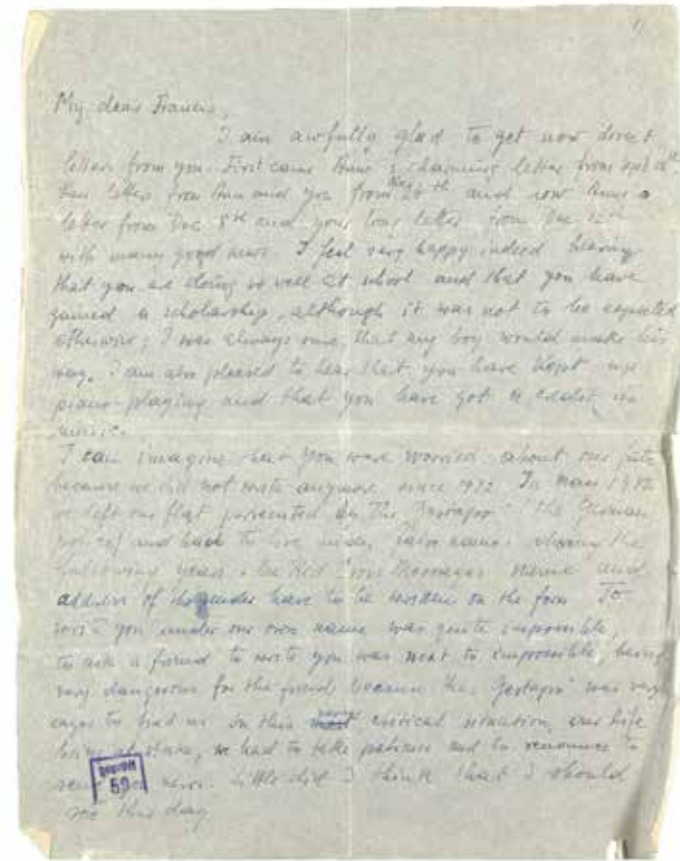 1)
My dear Francis,
I am awfully glad to get now direct
letters from you. First came Anne's charming letter from Sept
then letter from Ann and you from 26th and now Anne's
letter from Dec 8th and your long letter from Dec 12th
with many good news. I feel very happy indeed hearing
that you are doing so well at school and that you have
gained a scholarship, although it was not to be expected
otherwise; I was always sure, that my boy would make his
way. I am also pleased to hear that you have kept up
piano-playing and that you have got a credit in
music.
I can imagine that you were worried about our fate
because we did not write anymore since 1942. In 1942
we left our flat persecuted by the "Gestapo" (the German
police) and had to live under false names during the
following years. On Red Cross Messages name and
address of the sender have to be written on the form. To
write you under our own name was quite impossible,
to ask a friend to write you was next to impossible, being
very dangerous for the friend because the "Gestapo" was very
eager to find us. In this critical situation, our life
being at stake, we had to take patience and to renounce to
send you news. Little did I think that I should
see this day.
59